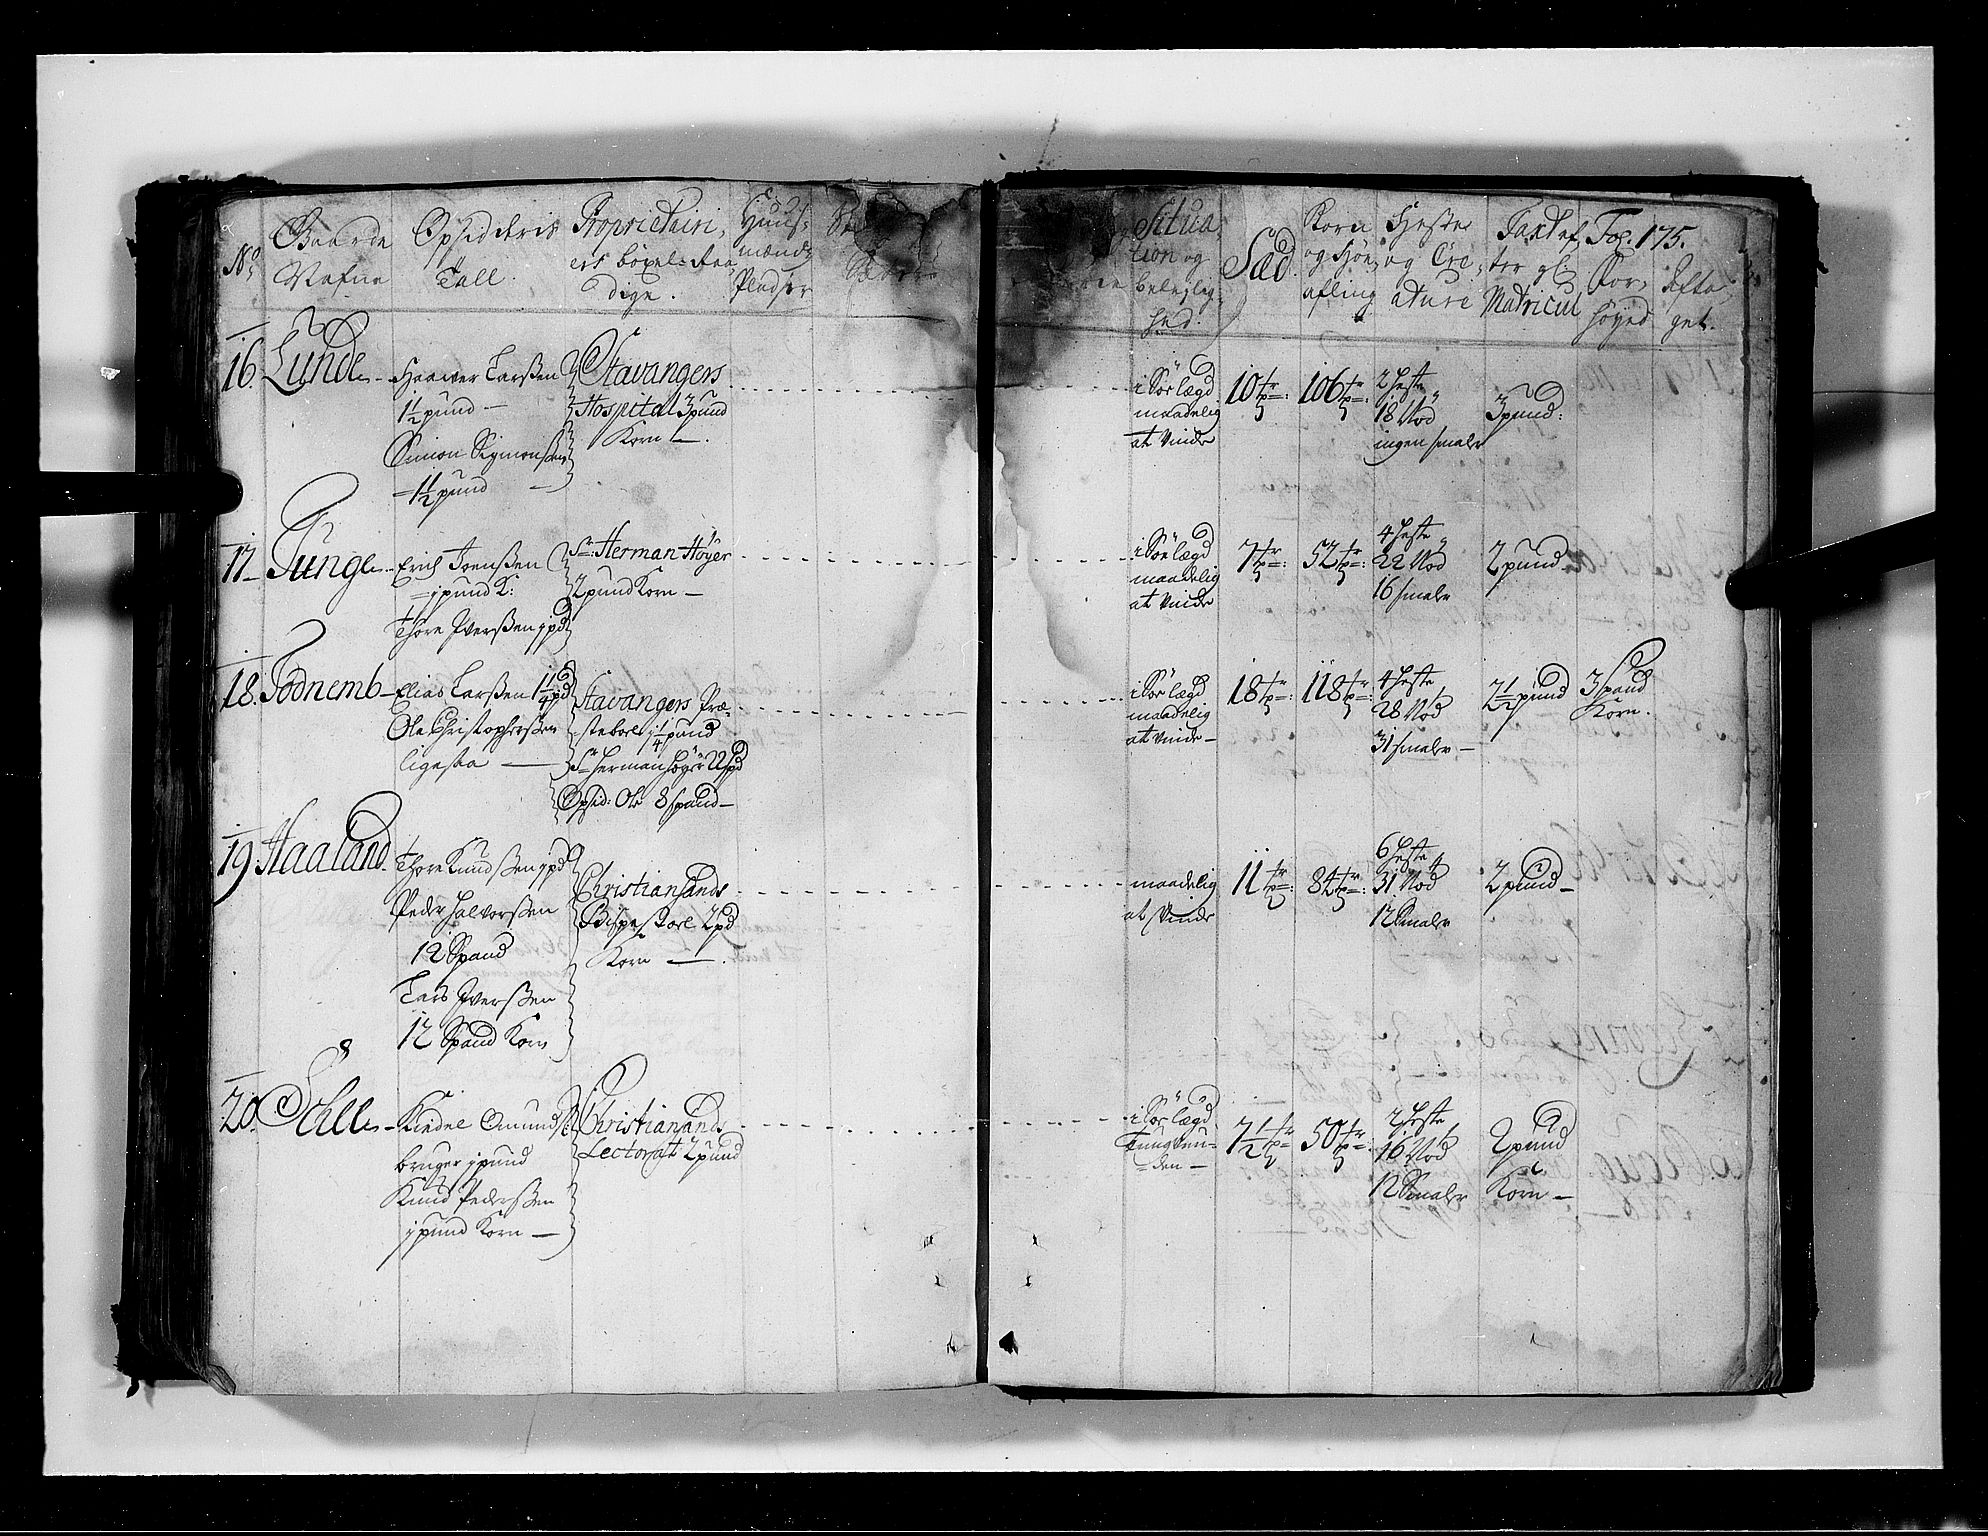 No Gaarde Nafne
Opsidderis Tall
Proprietairi, ers böxel-Raa, dige.
Huus, mænds Pladser
Situa tion og beleylig, hed.
Sæd.
Korn og Höe, afling
Heste og Cre, ature
Taxt ef, ter gl: Matricul
Fol. 175.
For, höyed
Afta, get.
16. Lunde
Haawer Larssen
1 1/2 pund
Simon Sigmonssen
1 1/2 pund
Stavangers
Hospital 3 pund
Korn
i Soelægd
maadelig
at vinde
10 tr
106 tr
2 Heste
18 Nod
ingen smaler
3 pund:
17 Tunge
Erich Joenssen
1 pund K:
Thore Iverssen 1 pd
Sr: Herman Höyer
2 pund Korn
i Soelægd
maadelig
at vinde
7 tr
52 tr
4 Heste
22 Nod
16 smaler
2 pund
18. Todnemb
Elias Larssen 1 1/4 pd
Ole Christophersen
ligesaa
Stavangers Præ,
steboel 1 1/4 pund
Sr Herman Höyer
Opsid: Ole 8 spand
i Soelægd
maadelig
at vinde
18 tr
118 tr
4 Heste
28 Nod
31 smaler
2 1/2 pund
3 Spand
Korn.
19. Haaland
Thore Knudssen 1 pd
Peder Halvorssen
12 Spand
Lars Iverssen
12 Spand Korn
Christiansands
Bispestoel 2 pd
Korn
maadelig
at vinde
11 tr
84 tr
6 Heste
31 Nod
12 Smaler
2 pund
20. Sölle
Kiedel Omunds:
bruger 1 pund
Knud Pederssen
1 pund Korn
Christiansands
Lectorat 2 pund
i Soelægd
Tungvun-
den
7 1/2 tr
50 tr
2 Heste
16 Nod
12 Smaler
2 pund
Korn